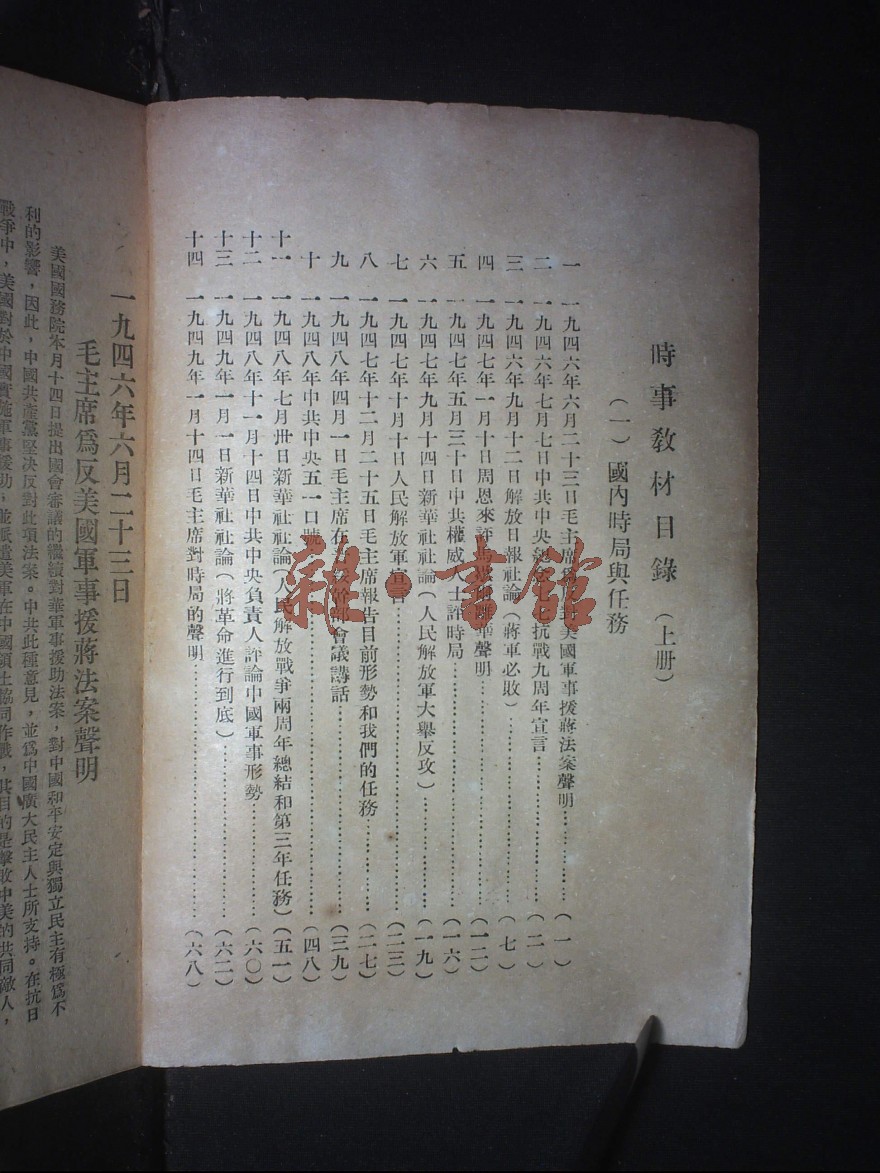 時事教材目錄（上册）
（一）國內時局與任務
一 一九四六年六月二十三日毛主席爲反對美國軍事援蔣法案聲明…………（一）
二 一九四六年七月七日中共中央 抗戰九周年宣言…………（二）
三 一九四六年九月十二日解放日報社論（蔣軍必敗）…………（七）
四 一九四七年一月十日周恩來評 聲明…………（一二）
五 一九四七年五月三十日中共權威人士評時局…………（一六）
六 一九四七年九月十四日新華社社論（人民解放軍大舉反攻）…………（一九）
七 一九四七年十月十日人民解放軍宣言…………（二三）
八 一九四七年十二月二十五日毛主席報告目前形勢和我們的任務…………（二七）
九 一九四八年四月一日毛主席在 幹部會議講話…………（三九）
十 一九四八年中共中央五一口號…………（四八）
十一 一九四八年七月卅日新華社社論（人民解放戰爭兩周年總結和第三年任務）（五一）
十二 一九四八年十一月十四日中共中央負責人評論中國軍事形勢…………（六〇）
十三 一九四九年一月一日新華社社論（將革命進行到底）…………（六二）
十四 一九四九年一月十四日毛主席對時局的聲明…………（六八）
雜·書館
一九四六年六月二十三日
毛主席爲反美國軍事援蔣法案聲明
美國國務院本月十四日提出國會審議的繼續對華軍事援助法案，對中國和平安定與獨立民主有極爲不
利的影響，因此，中國共產黨堅决反對此項法案。中共此種意見，並爲中國廣大民主人士所支持。在抗日
戰爭中，美國對於中國實施軍事援助，並派遣美軍在中國領土協同作戰，其目的是擊敗中美的共同敵人，